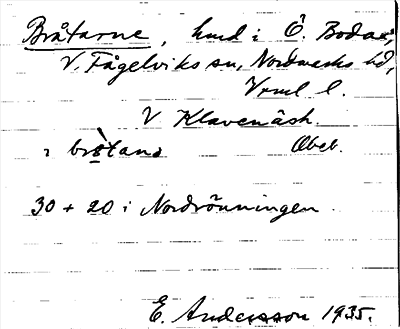 Bråtarne, hmd i Ö. Bodane,
V. Fågelviks sn, Nordmarks hd,
Vrml l.
V Klavenäsh.
i brɵ̀tanɒ Obeb.
30 + 20 i Nordrönningen.
E. Andersson 1935.